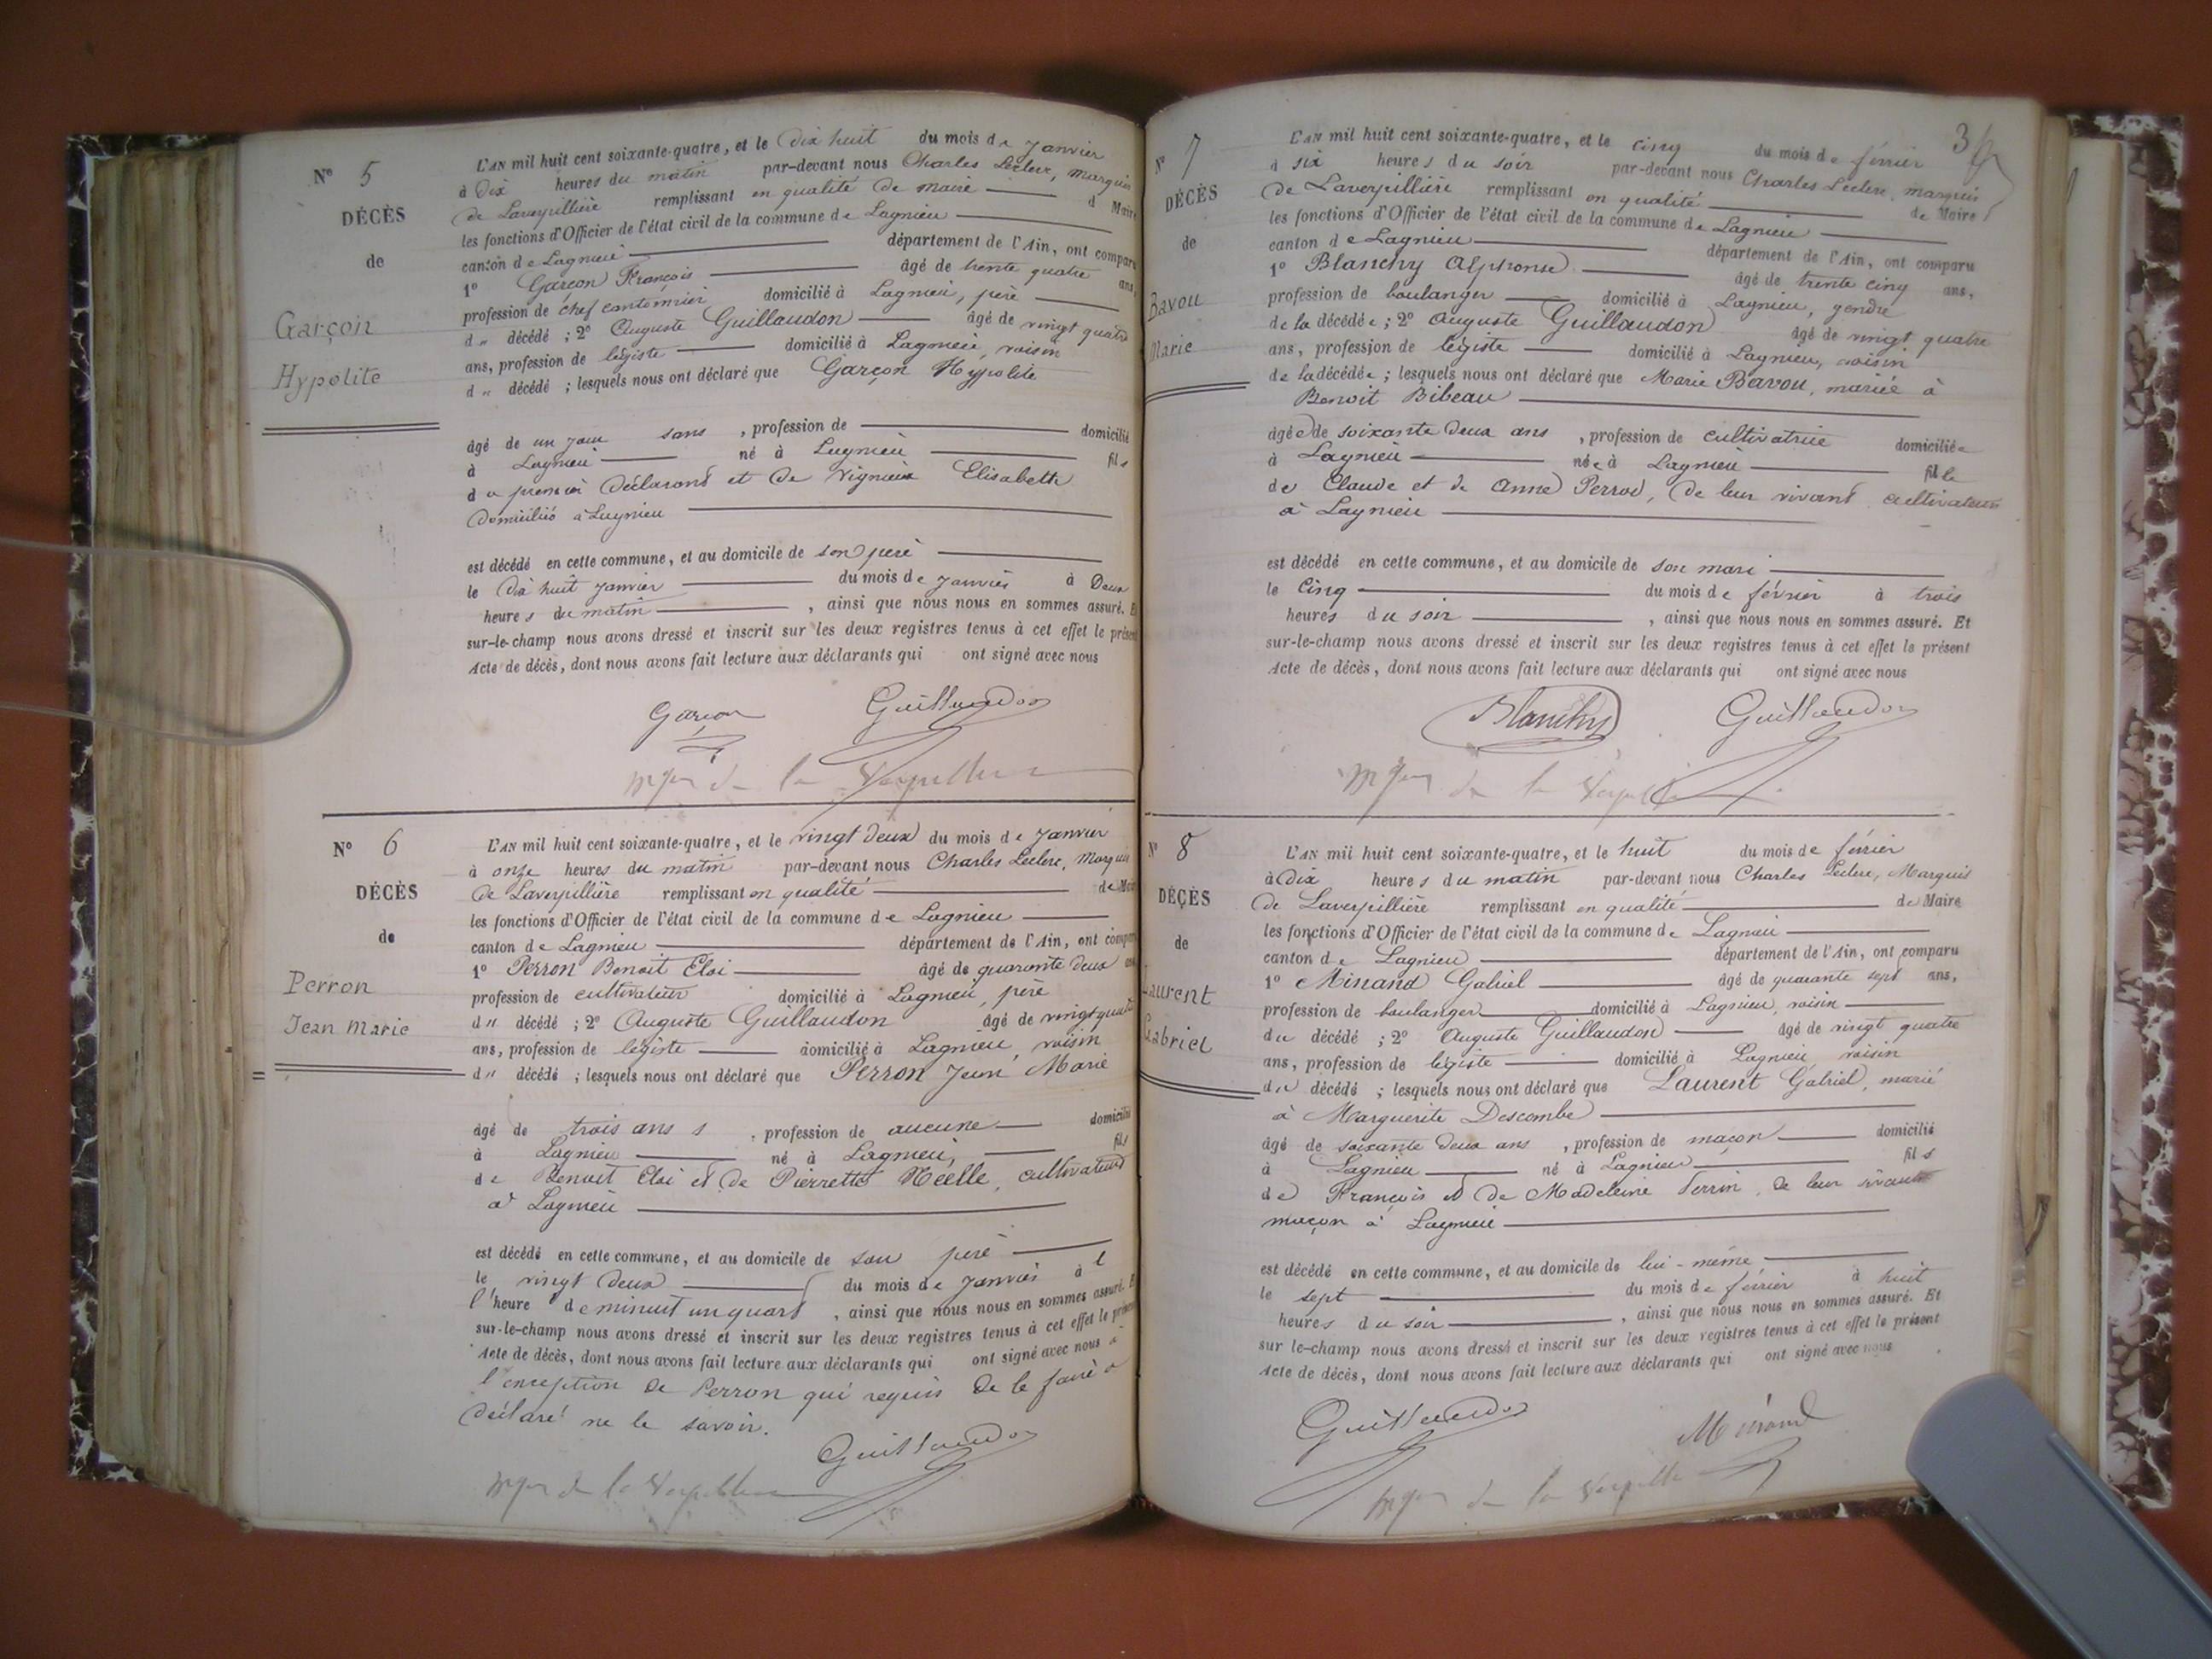 N° 5
DÉCÈS
de
Garçon
Hypolite
L'AN mil huit cent soixante-quatre, et le Dix huit du mois de Janvier
à Dix heures du matin par-devant nous Charles Leclerc, marquis
de Laverpillière remplissant en qualité de maire d Maire
les fonctions d'Officier de l'état civil de la commune de Lagnieu
canton de Lagnieu département de l'Ain, ont comparu
1° Garçon François âgé de trente quatre ans,
profession de chef cantonnier domicilié à Lagnieu, père
d" décédé ; 2° Auguste Guillaudon âgé de vingt quatre
ans, profession de légiste domicilié à Lagnieu, voisin
d" décédé ; lesquels nous ont déclaré que Garçon Hypolite
âgé de un jour sans , profession de domicilié
à Lagnieu né à Lagnieu fils
du premier Déclarant et de Vignieux Elisabeth
Domiciliés à Lagnieu
est décédé en cette commune, et au domicile de son père
le Dix huit Janvier du mois de Janvier à Deux
heures du matin , ainsi que nous nous en sommes assuré. E
sur-le-champ nous avons dressé et inscrit sur les deux registres tenus à cet effet le présent
Acte de décès, dont nous avons fait lecture aux déclarants qui ont signé avec nous
Garçon Guillaudon
de la Verpillière
N° 6
DÉCÈS
de
Perron
Jean Marie
L'AN mil huit cent soixante-quatre, et le vingt deux du mois de Janvier
à onze heures du matin par-devant nous Charles Leclerc, Marquis
de Laverpillière remplissant en qualité de Maire
les fonctions d'Officier de l'état civil de la commune de Lagnieu
canton de Lagnieu département de l'Ain, ont comparu
1° Perron Benoit Eloi âgé de quarante deux ans
profession de cultivateur domicilié à Lagnieu, père
d" décédé ; 2° Auguste Guillaudon âgé de vingt quatre
ans, profession de légiste domicilié à Lagnieu, voisin
d" décédé ; lesquels nous ont déclaré que Perron Jean Marie
âgé de trois ans , profession de aucune domicilié
à Lagnieu né à Lagnieu, fils
de Benoit Eloi et de Pierrette cultivateurs
à Lagnieu
est décédé en cette commune, et au domicile de son père
le vingt Deux du mois de Janvier à l
l'heure de minuit un quart , ainsi que nous nous en sommes assuré. E
sur-le-champ nous avons dressé et inscrit sur les deux registres tenus à cet effet le présent
Acte de décès, dont nous avons fait lecture aux déclarants qui ont signé avec nous à
l'exception de Perron qui requis de le faire a
Déclaré ne le savoir.
Guillaudon
de la Verpillière
N° 7
DÉCÈS
de
Bavou
Marie
L'AN mil huit cent soixante-quatre, et le cinq du mois de février
à six heures du soir par-devant nous Charles Leclerc, marquis
de Laverpillière remplissant en qualité de Maire
les fonctions d'Officier de l'état civil de la commune de Lagnieu
canton de Lagnieu département de l'Ain, ont comparu
1° Blanchy Alphonse âgé de trente cinq ans,
profession de boulanger domicilié à Lagnieu, gendre
de la décédée ; 2° Auguste Guillaudon âgé de vingt quatre
ans, profession de légiste domicilié à Lagnieu, voisin
de la décédée ; lesquels nous ont déclaré que Marie Bavou, mariée à
Benoit Bibeau
âgée de soixante deux ans , profession de cultivatrice domiciliée
à Lagnieu née à Lagnieu fille
de Claude et de Anne Perrod, de leur vivant cultivateurs
à Lagnieu
est décédé en cette commune, et au domicile de son mari
le Cinq du mois de février à trois
heures du soir , ainsi que nous nous en sommes assuré. Et
sur-le-champ nous avons dressé et inscrit sur les deux registres tenus à cet effet le présent
Acte de décès, dont nous avons fait lecture aux déclarants qui ont signé avec nous
Blanchy Guillaudon
de la Verpillière
N° 8
DÉCÈS
de
Laurent
Gabriel
L'AN mil huit cent soixante-quatre, et le huit du mois de février
à Dix heures du matin par-devant nous Charles Leclerc, Marquis
de Laverpillière remplissant en qualité de Maire
les fonctions d'Officier de l'état civil de la commune de Lagnieu
canton de Lagnieu département de l'Ain, ont comparu
1° Minand Gabriel âgé de quarante sept ans,
profession de boulanger domicilié à Lagnieu, voisin
du décédé ; 2° Auguste Guillaudon âgé de vingt quatre
ans, profession de légiste domicilié à Lagnieu voisin
du décédé ; lesquels nous ont déclaré que Laurent Gabriel, marié
à Marguerite Descombe
âgé de soixante deux ans , profession de maçon domicilié
à Lagnieu né à Lagnieu fils
de François et de Madeleine Perrin, de leur vivant
maçon à Lagnieu
est décédé en cette commune, et au domicile de lui-même
le sept du mois de février à huit
heures du soir , ainsi que nous nous en sommes assuré. Et
sur le-champ nous avons dressé et inscrit sur les deux registres tenus à cet effet le présent
Acte de décès, dont nous avons fait lecture aux déclarants qui ont signé avec nous
Guillaudon Minand
de la Verpillière